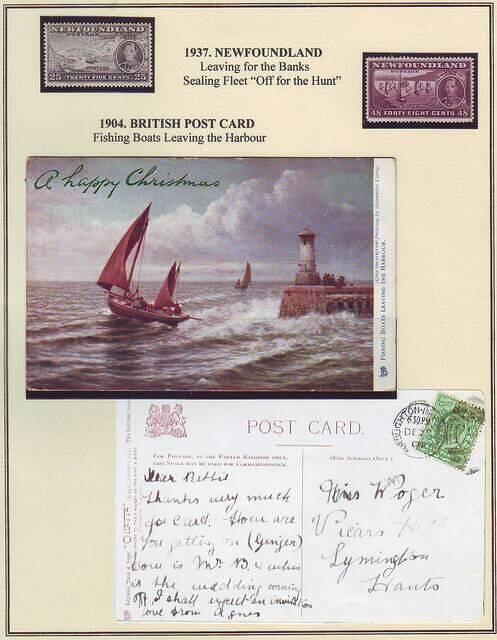 NEWFOUNDLAND
POSTAGE
25 TWENTY FIVE CENTS 25
1937. NEWFOUNDLAND
Leaving for the Banks
Sealing Fleet “Off for the Hunt”
NEWFOUNDLAND
POSTAGE
48 FORTY EIGHT CENTS 48
1904. BRITISH POST CARD
Fishing Boats Leaving the Harbour
A happy Christmas
FISHING BOATS LEAVING THE HARBOUR.
POST CARD.
FOR POSTAGE IN THE UNITED KINGDOM ONLY,
THIS SPACE MAY BE USED FOR CORRESPONDENCE.
(FOR ADDRESS ONLY.)
Dear
Thanks very much
for card. How are
you getting on (Ginger)
how is Mr. B. &
is the wedding coming
off I shall expect an invitation
love from Agnes
Miss Woger
Vicars Hill
Lymington
Hants